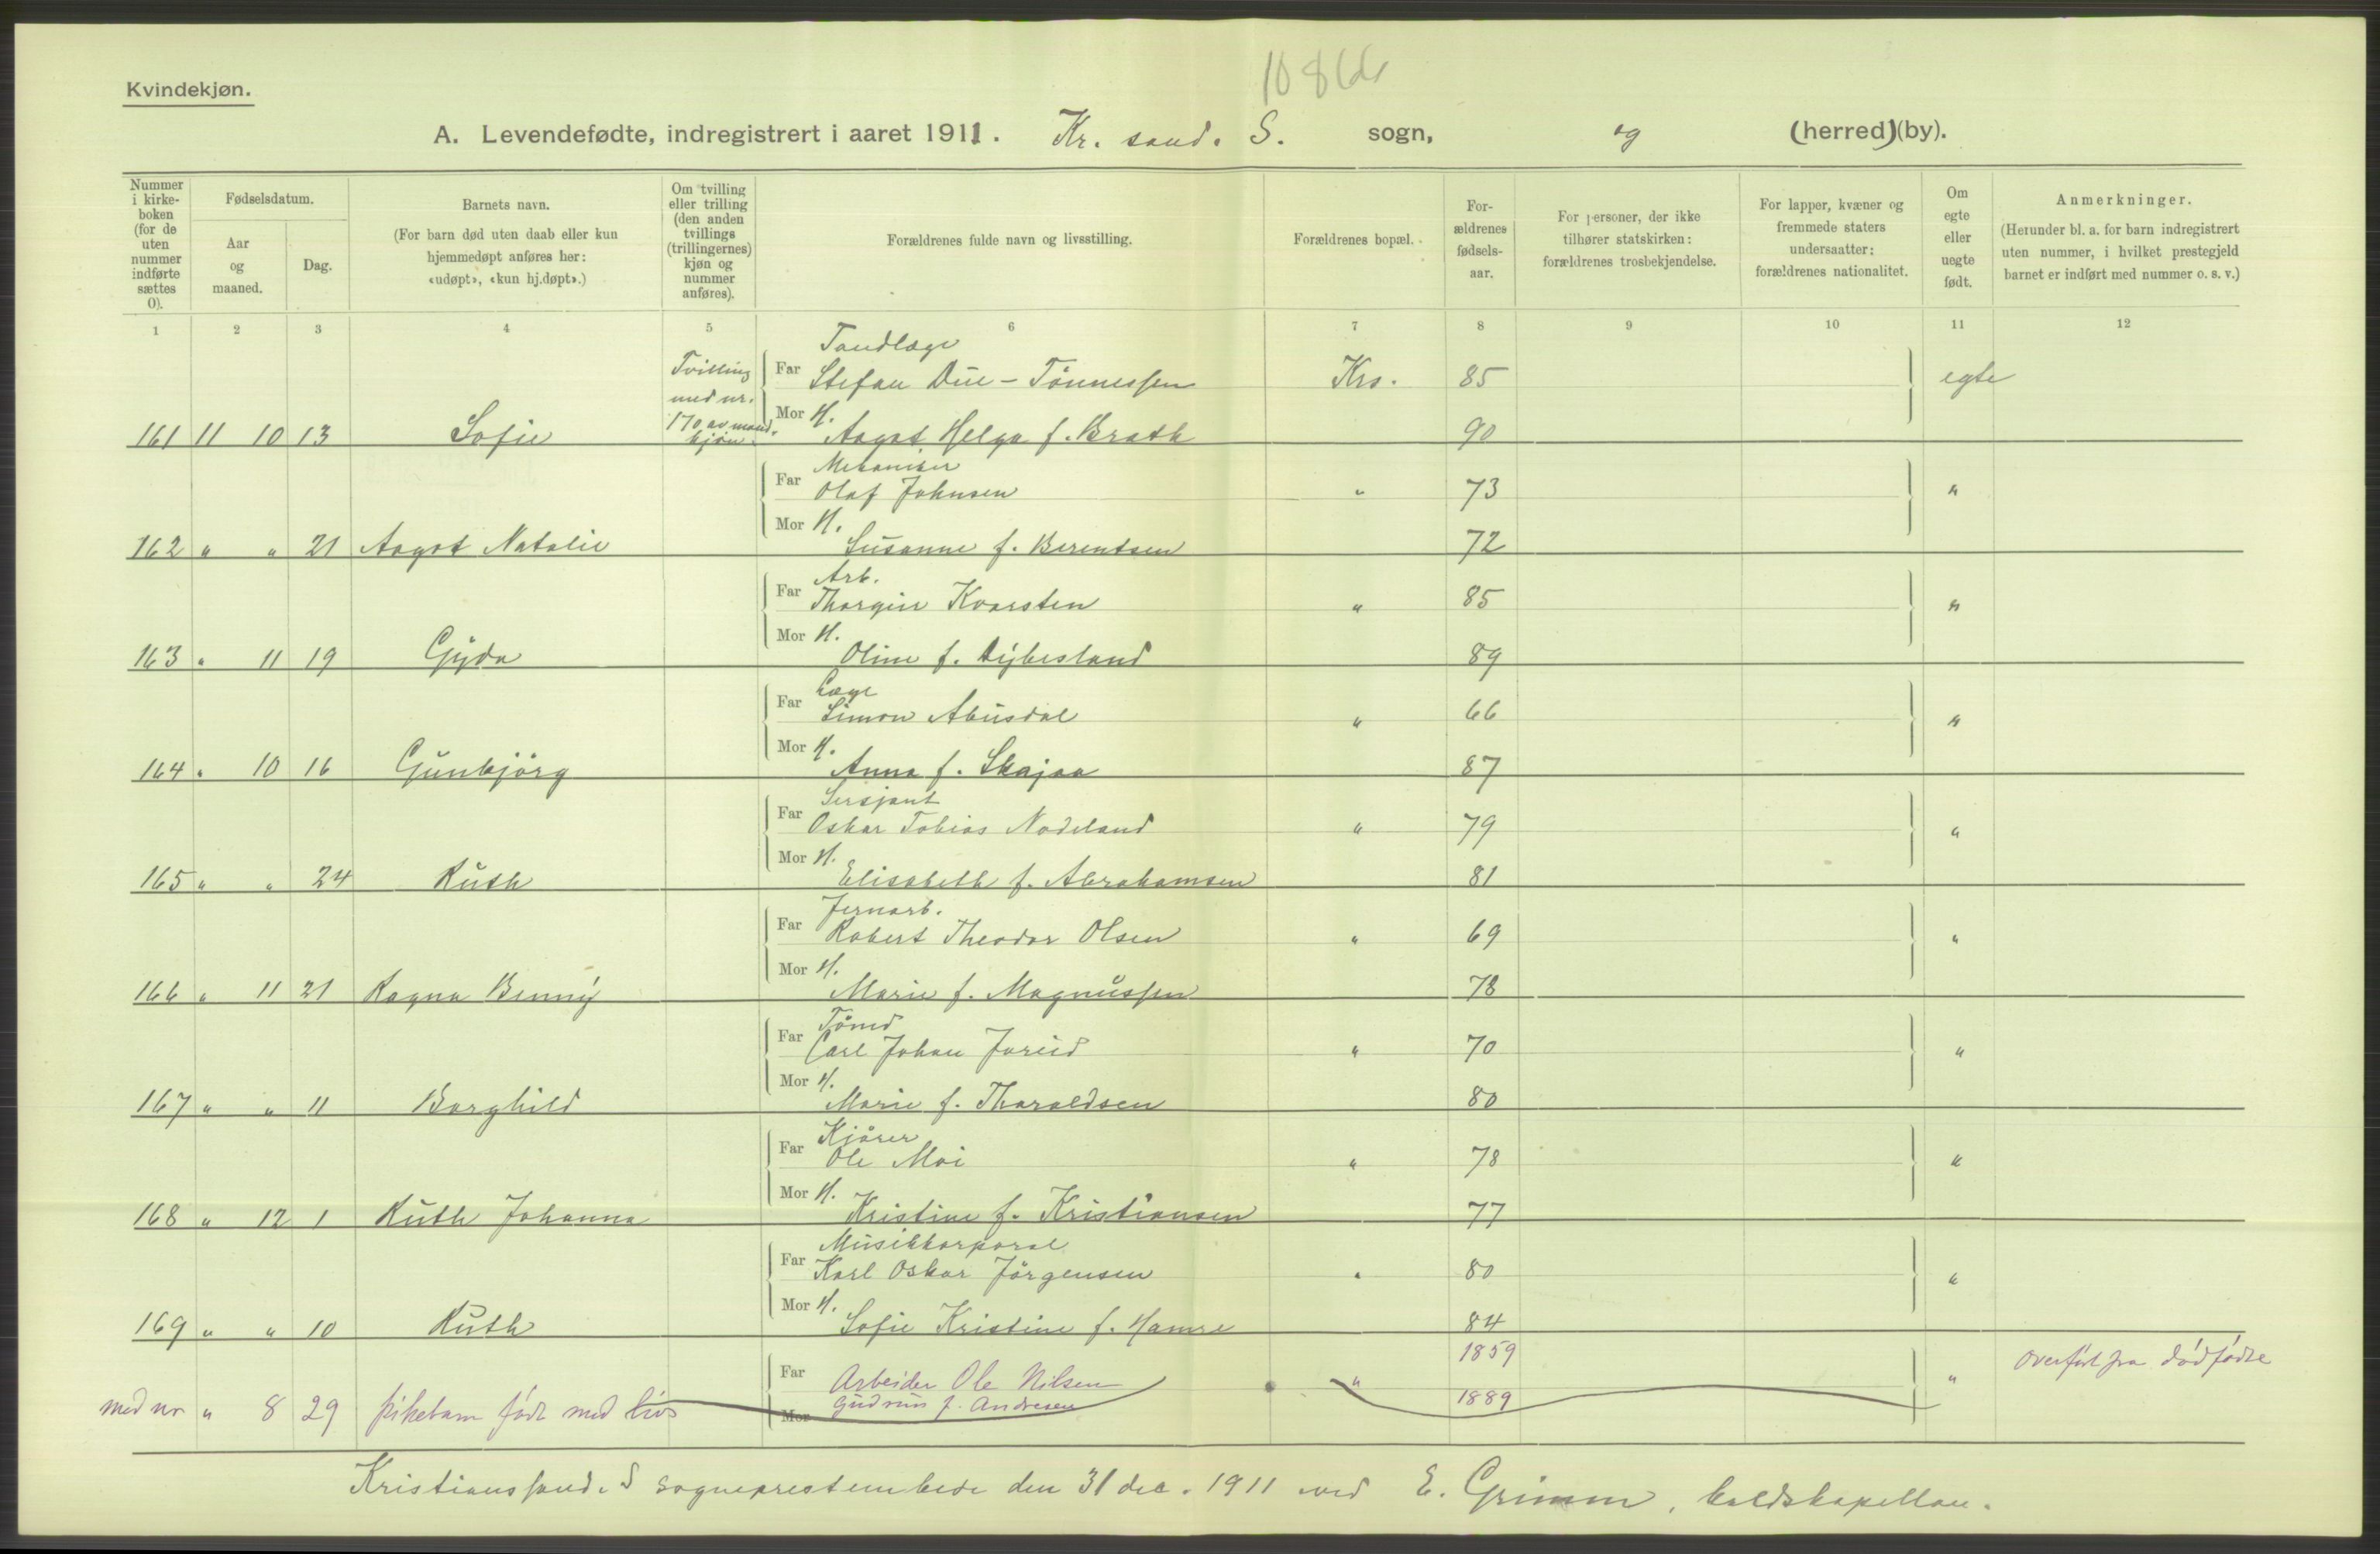 Kvindekjøn.
A. Levendefødte, indregistrert i aaret 1911. Kr. sand. S. sogn, og (herred)(by).
Nummer i kirkeboken (for de uten nummer indførte sættes 0).
Fødselsdatum.
Aar og maaned.
Dag.
Barnets navn.
(For barn død uten daab eller kun hjemmedøpt anføres her: «udøpt», «kun hj.døpt».)
Om tvilling eller trilling (den anden tvillings (trillingernes) kjøn og nummer anføres).
Forældrenes fulde navn og livsstilling.
Forældrenes bopæl.
Forældrenes fødselsaar.
For personer, der ikke tilhører statskirken: forældrenes trosbekjendelse.
For lapper, kvæner og fremmede staters undersaatter: forældrenes nationalitet.
Om egte eller uegte født.
Anmerkninger.
(Herunder bl. a. for barn indregistrert uten nummer, i hvilket prestegjeld barnet er indført med nummer o. s. v.)
1 2 3 4 5 6 7 8 9 10 11 12
Tandlæge
Tvilling med nr. 170 av mand. kjøn.
Far Stefan Due-Tönnessen Krs. 85 egte
161 11 10 13 Sofie Mor H. Aagot Helga f. Brath 90
Mekaniker
Far Olaf Johnsen " 73 "
162 " " 21 Aagot Natalie Mor H. Susanne f. Berentsen 72
Arb.
Far Thorgeir Kvarsten " 85 "
163 " 11 19 Gyda Mor H. Oline f. Dybesland 89
Læge
Far Simon Abusdal " 66 "
164 " 10 16 Gunbjörg Mor H. Anna f. Skajaa 87
Sersjant
Far Oskar Tobias Nodeland " 79 "
165 " " 24 Ruth Mor H. Elisabeth f. Abrahamsen 81
Jernarb.
Far Robert Theodor Olsen " 69 "
166 " 11 21 Ragna Benny Mor H. Marie f. Magnussen 78
Tömd
Far Carl Johan Jureid " 70 "
167 " " 11 Borghild Mor H. Marie f. Tharaldsen 80
Kjörer
Far Ole Moi " 78 "
168 " 12 1 Ruth Johanna Mor H. Kristine f. Kristiansen 77
Musikkorporal
Far Karl Oskar Jörgensen " 80 "
169 " " 10 Ruth Mor H. Sofie Kristine f. Hamre 84
Far Arbeider Ole Nilsen " 1859 " Overført fra dødfødte
med nr " 8 29 pikebarn født med livs Mor Gudrun f. Andresen 1889
Kristianssand. S sogneprestembede den 31 dec. 1911 ved E. Grimm, kaldskapellan.